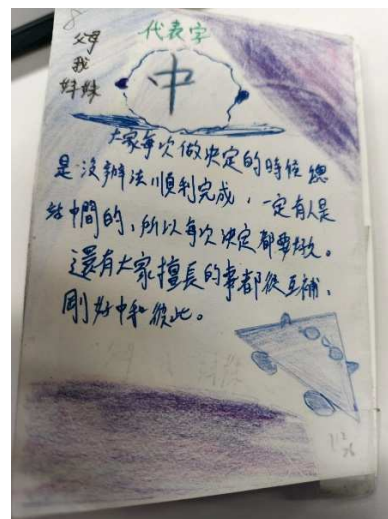 8
代表字
父母
我
妹妹
中
大家每次做決定的時候總
是沒辦法順利完成，一定有人是
站中間的，所以每次決定都要敲。
還有大家擅長的事都很互補，
剛好中和彼此。